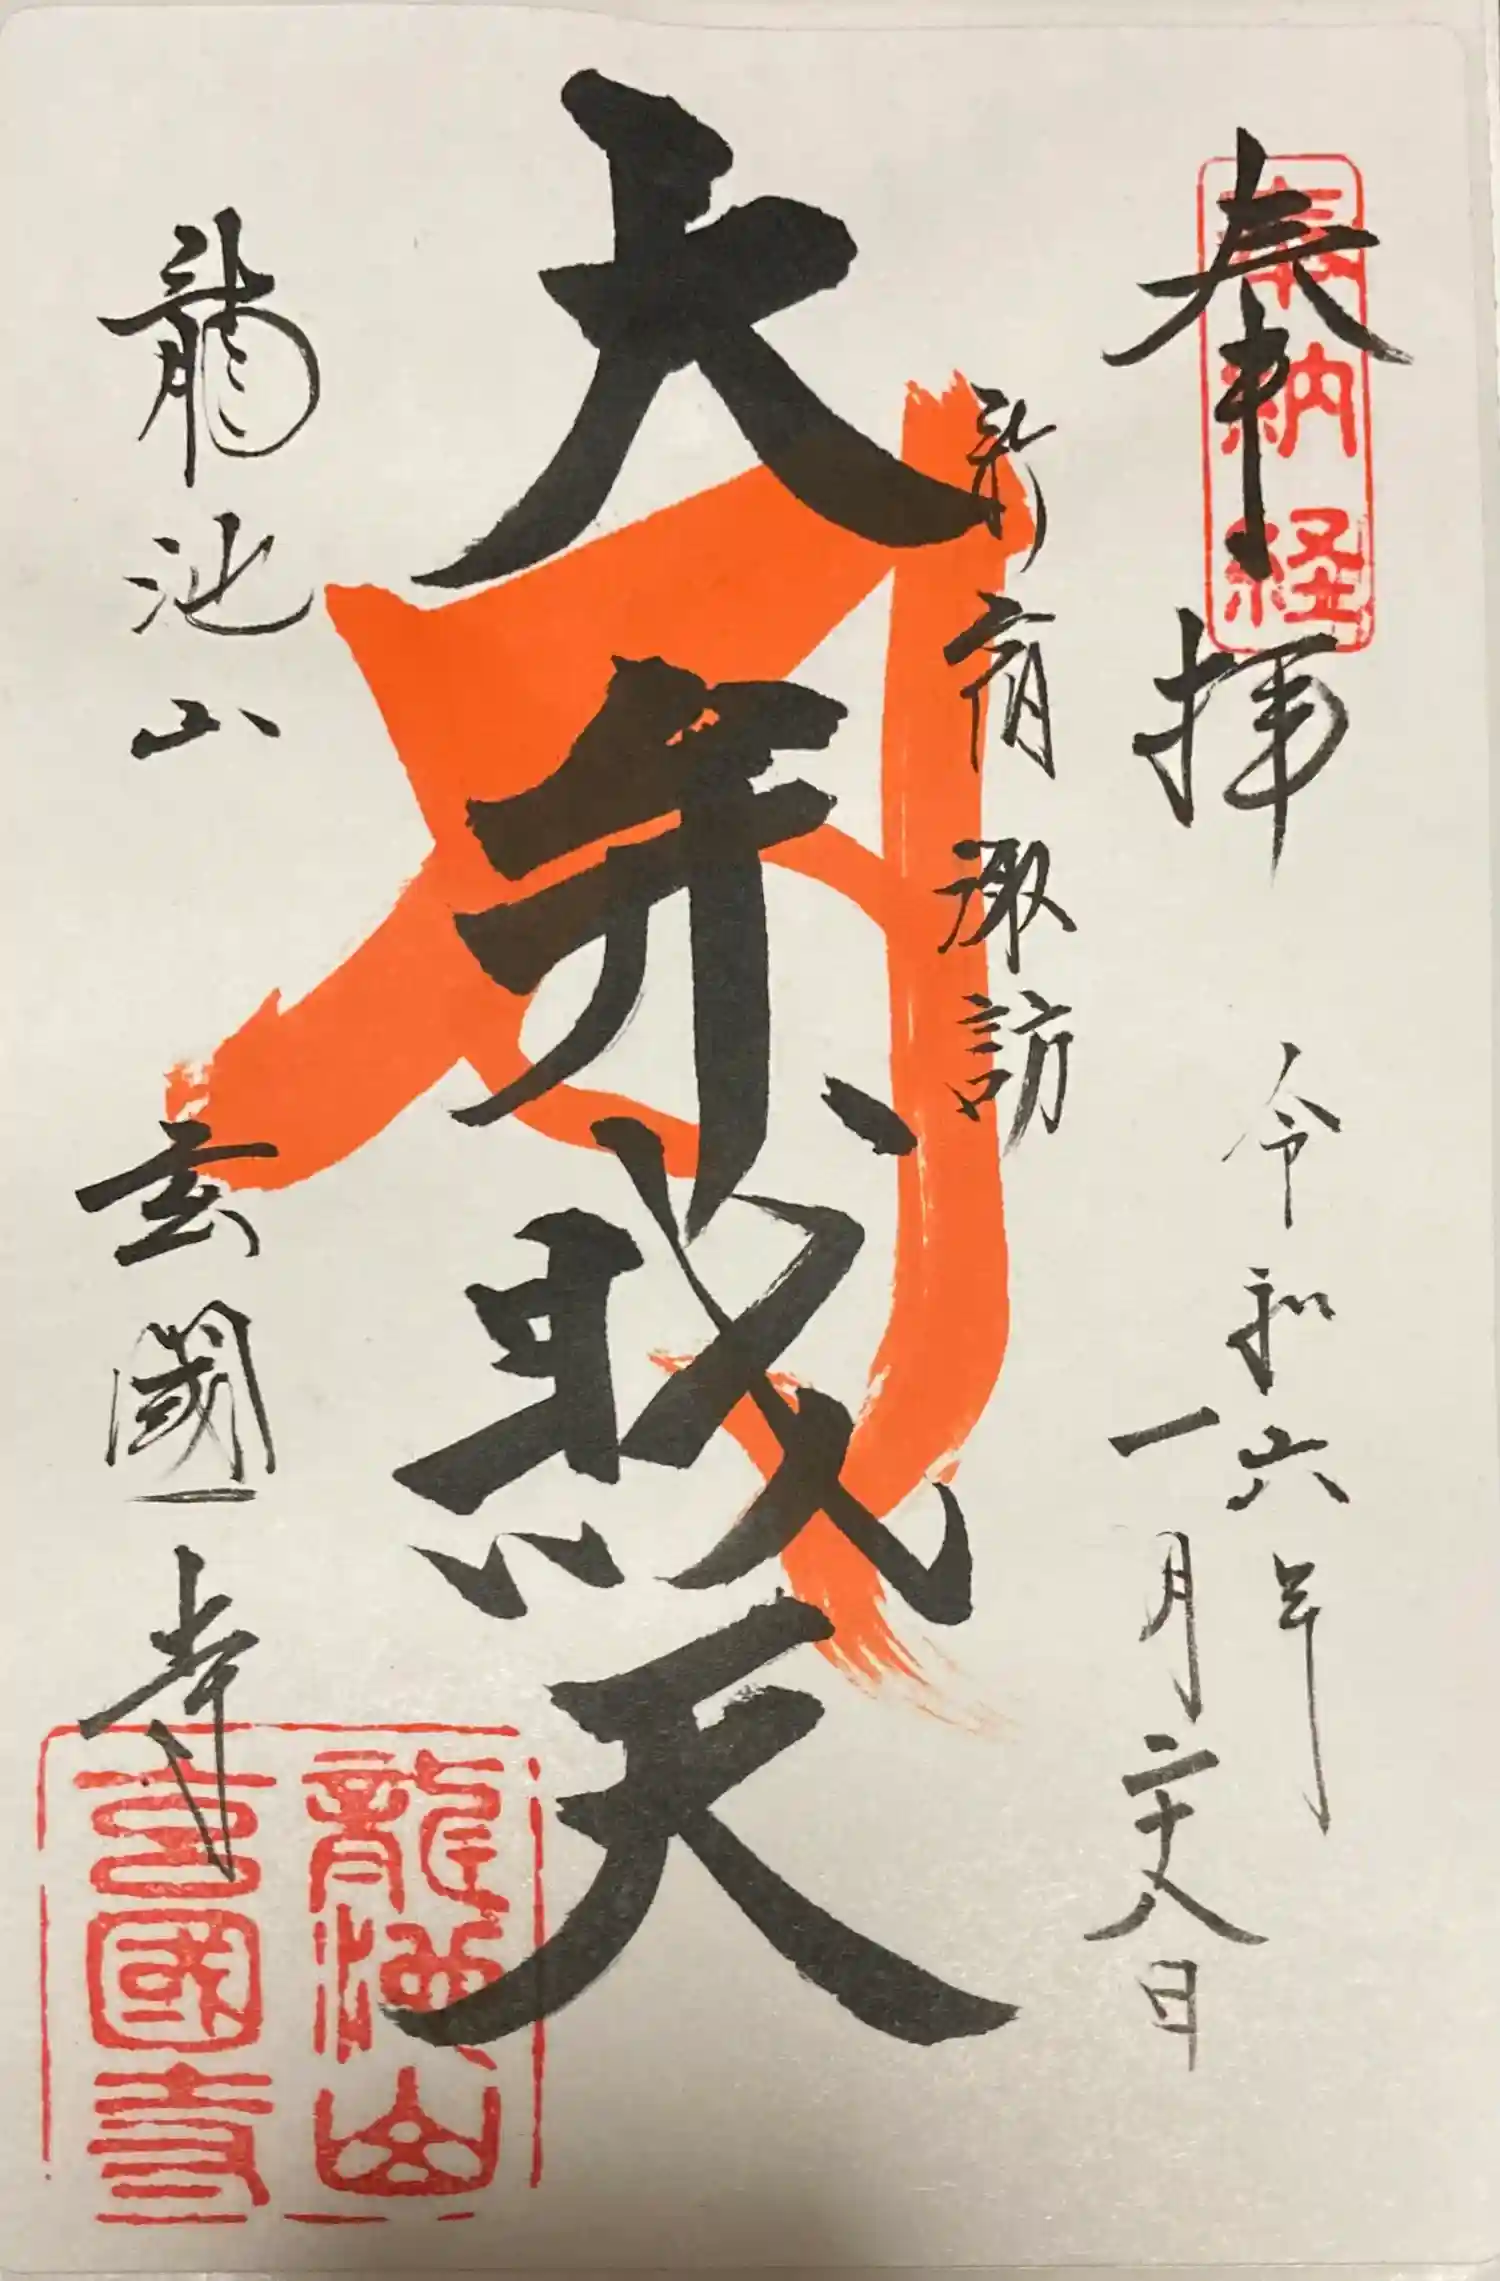 奉拝
奉納経
令和六年
一月二十八日
新宿諏訪
大弁財天
龍池山
玄國寺
龍池山
玄國寺